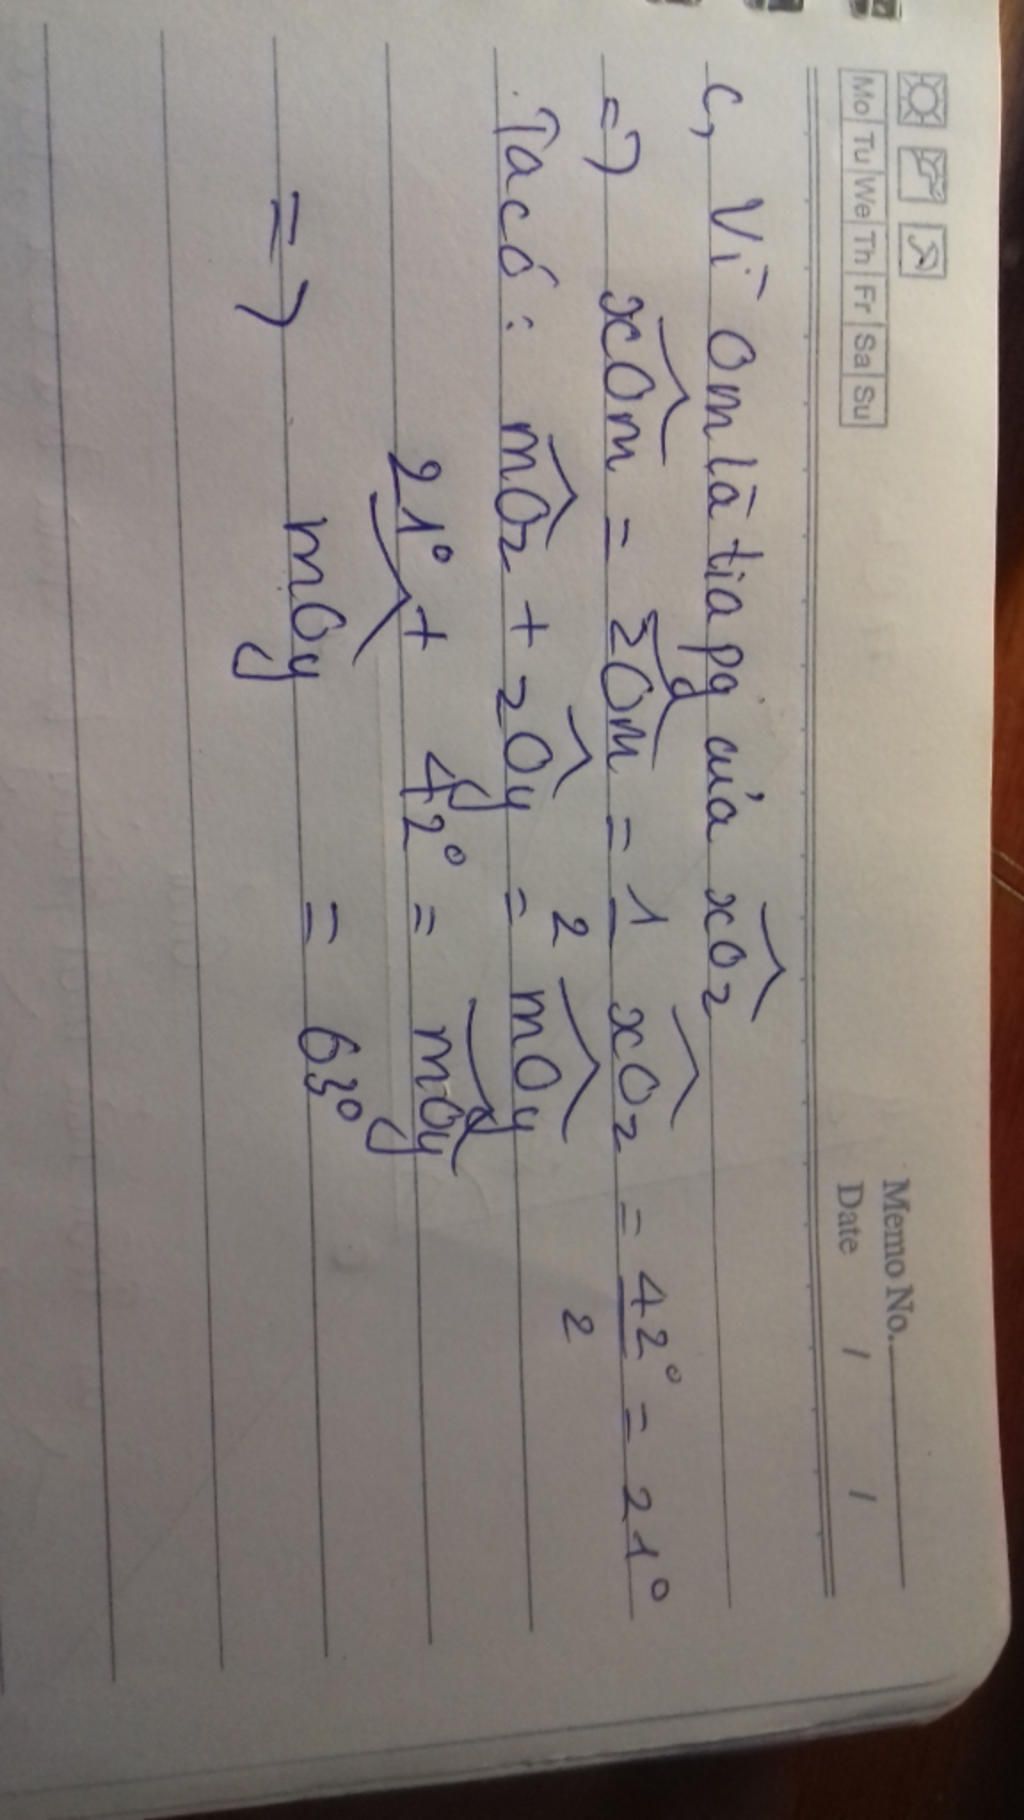 Memo No.
Mo Tu We Th Fr Sa Su
Date / /
c, Vì Om là tia pg của xOz
=> xOm = zOm = 1/2 xOz = 42°/2 = 21°
Ta có: mOz + zOy = mOy
21° + 42° = mOy
=> mOy = 63°